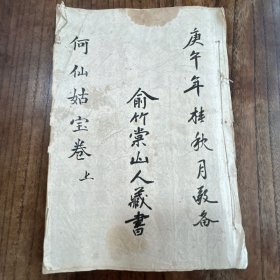 庚午年桂秋月敬备
俞竹棠山人藏書
何仙姑宝卷 上